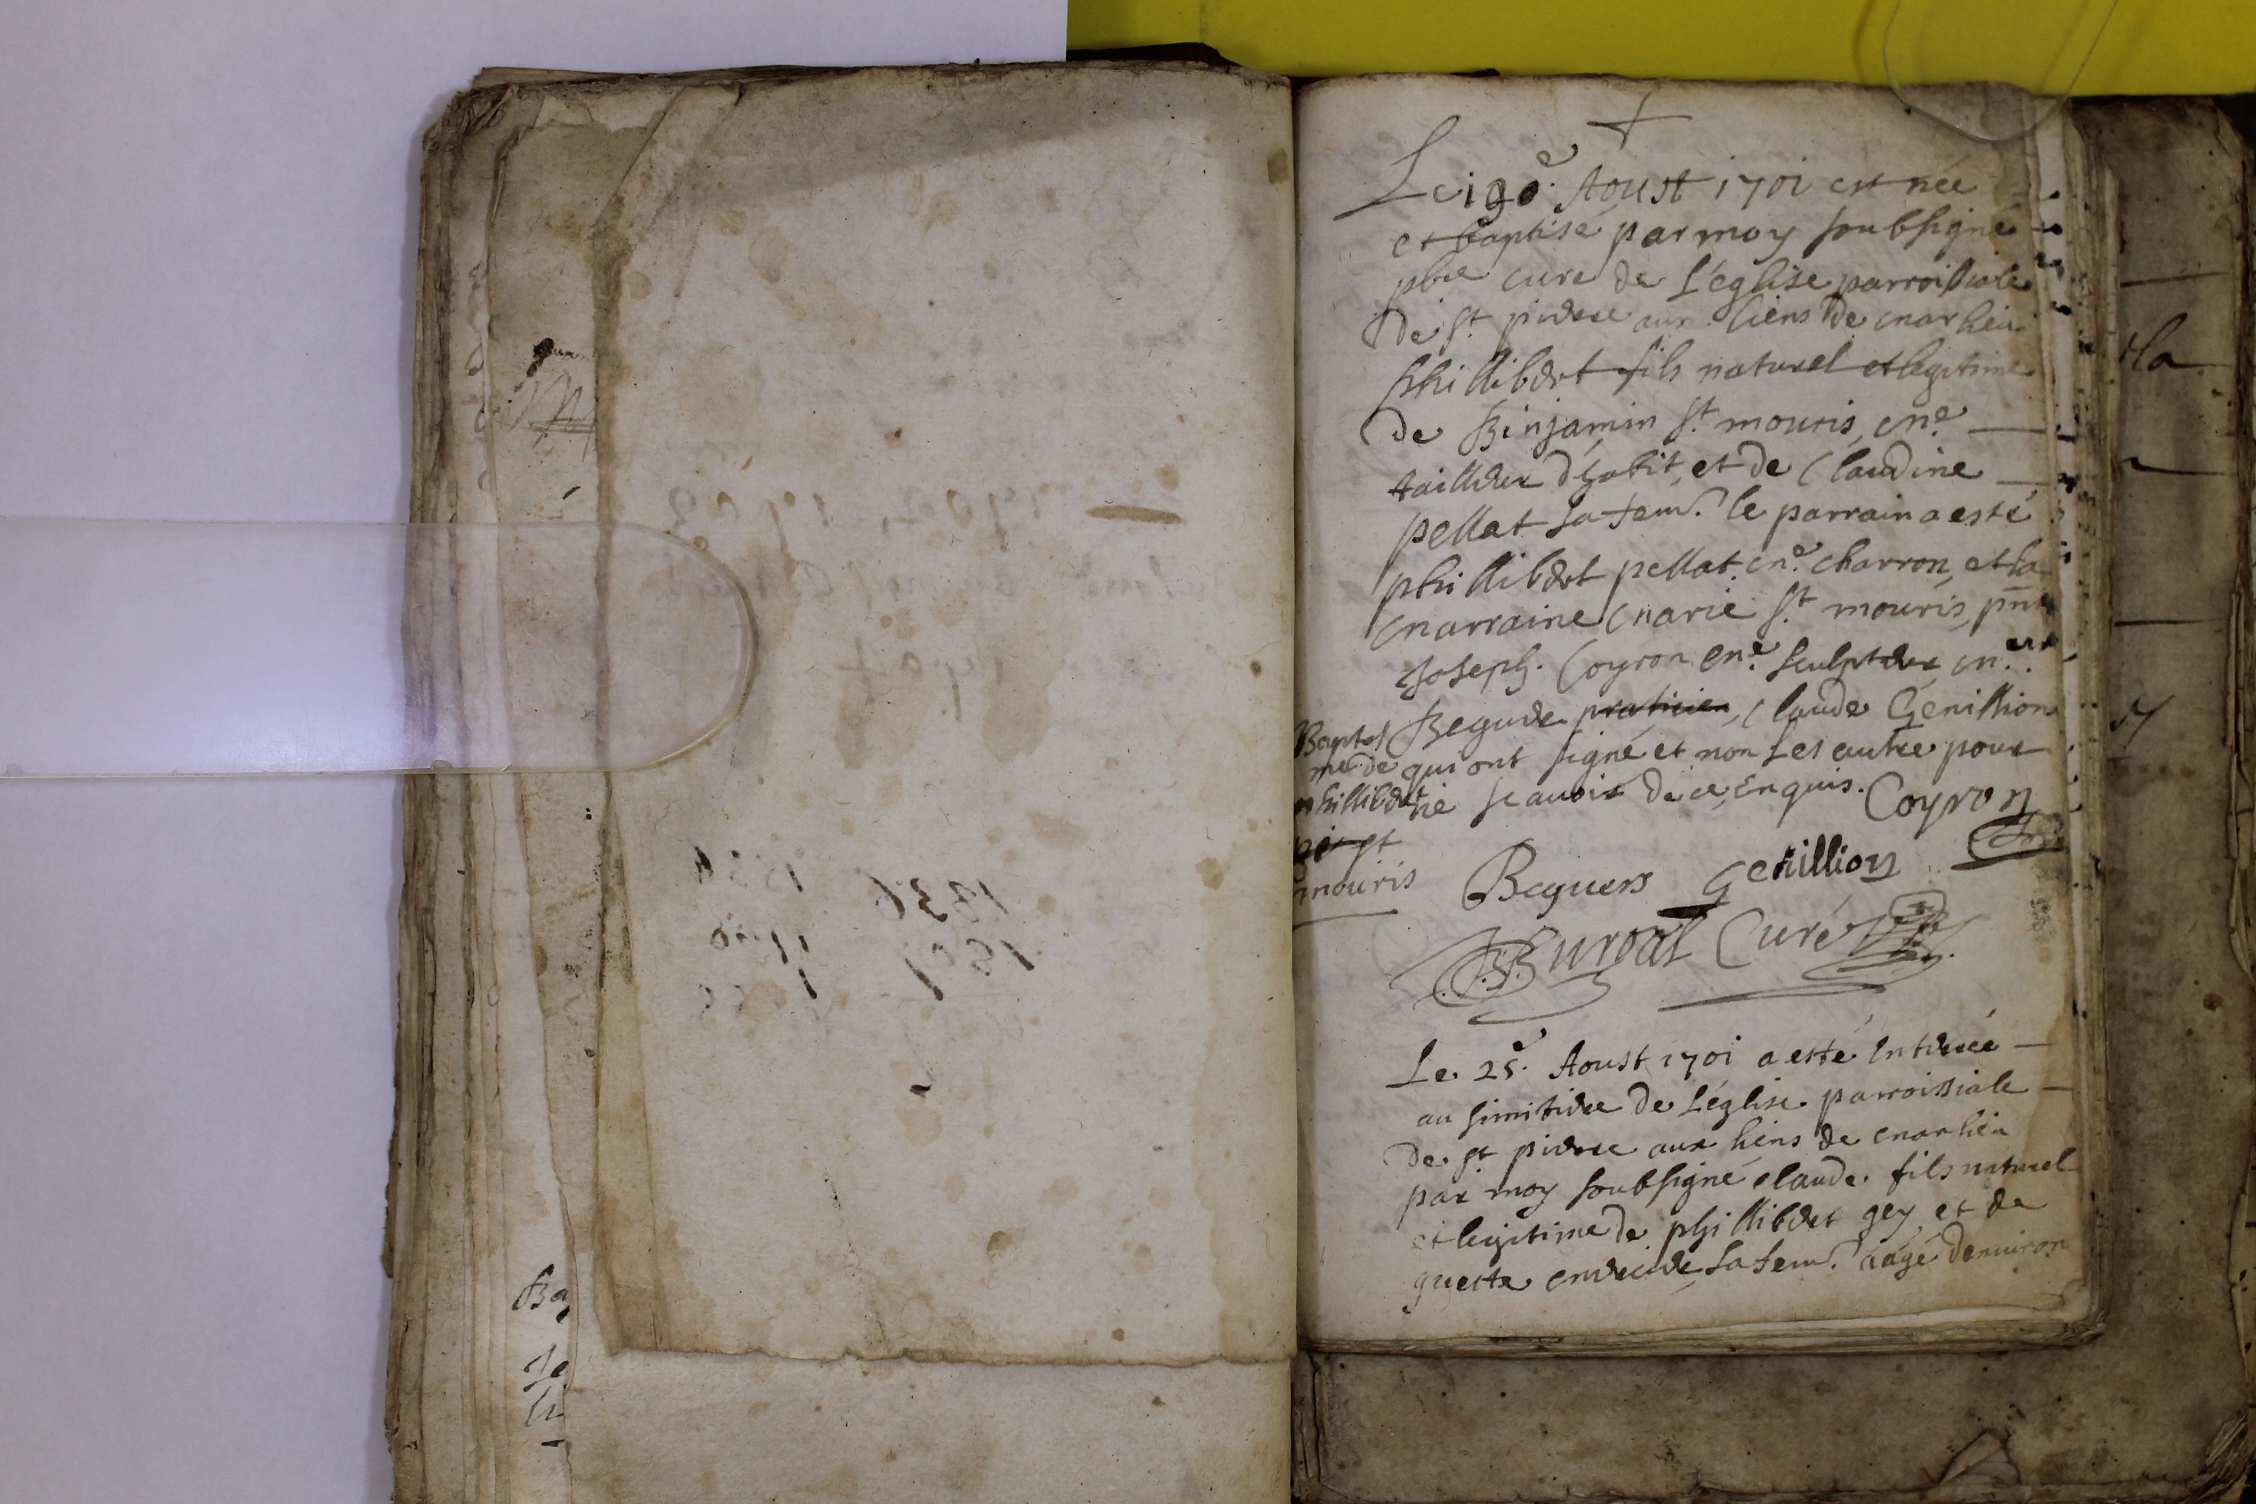 Le 19e. Aoust 1701 est née
et baptisé par moy soubsigné
pbre curé de L'églize parroissiale
De St. pierre aux liens de marlieu
Phillibert fils naturel et legitime
de Binjamin St. mouris, me.
tailleur d'habit, et de Claudine
pellat sa fem. le parrain a esté
phillibert pellat me. charron, et la
marraine marie St. mouris, pnt
Joseph. Coyron me. sculpteur me.
Begude praticien, Claude Genillion
qui ont signé et non Les autre pour
ne scauoir de ce, enquis. Coyron
Baptes
me de
phillibert
St
mouris
Beguers Genillion
Buroat Curé
Le 25e. Aoust 1701 a esté Enterrée
au simitiere de L'églize parroissiale
De St. pierre aux liens de marlieu
par moy soubsigné claude. fils naturel
et legitime de phillibert gey, et de
sa fem. aagé denuiron
Ba